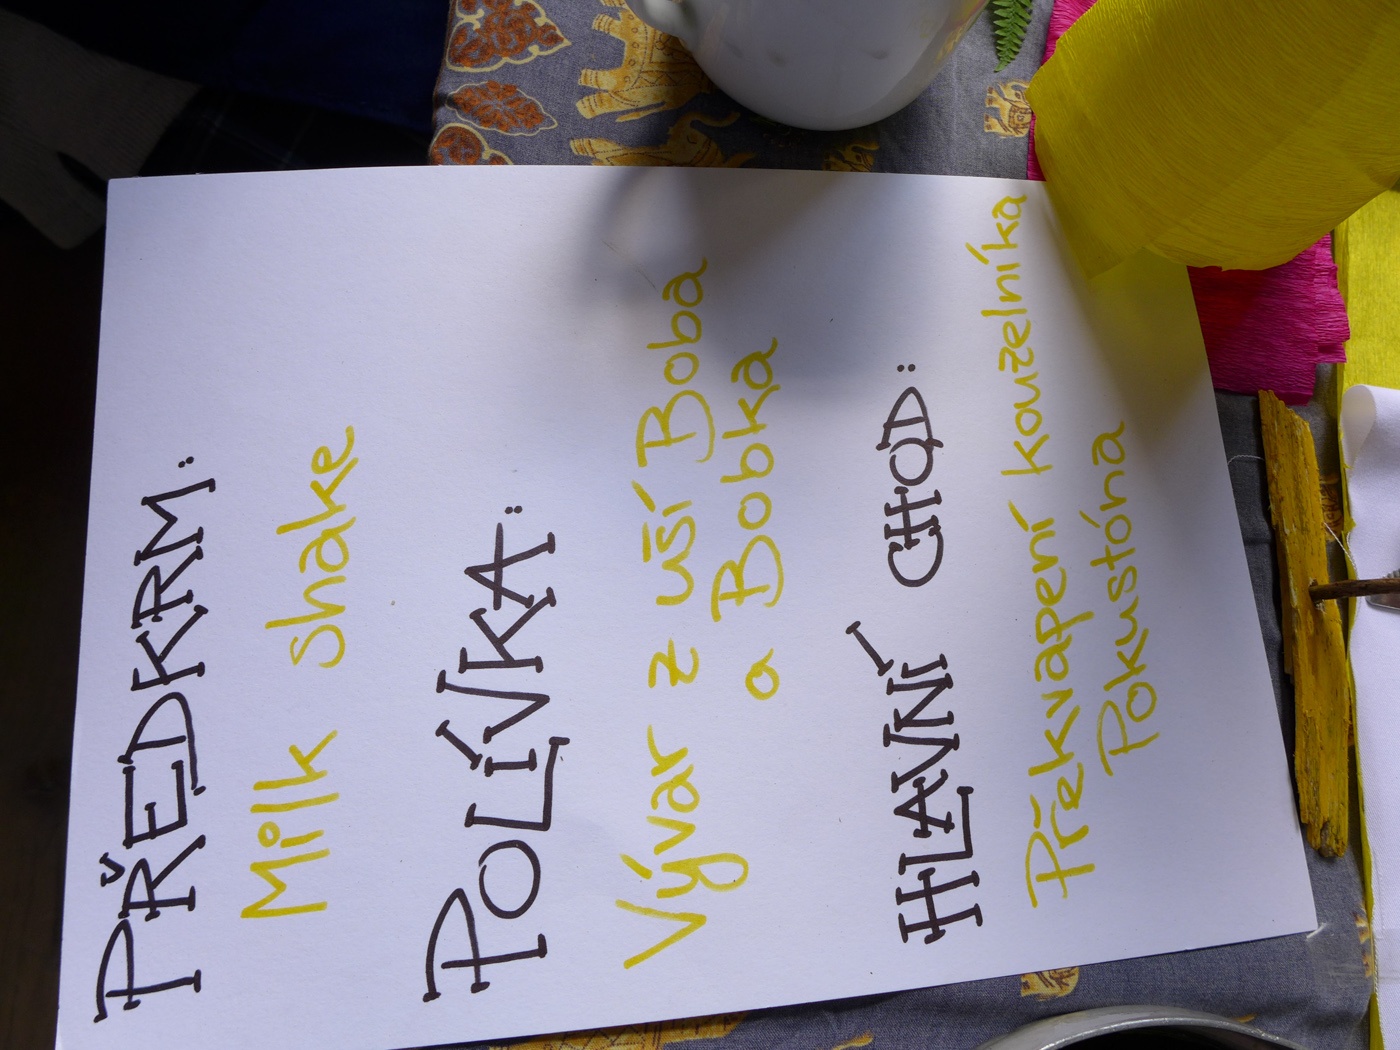 PŘEDKRM:
Milk shake
POLÍVKA:
Vývar z uší Boba
a Bobka
HLAVNÍ CHOD:
Překvapení kouzelníka
Pokustóna